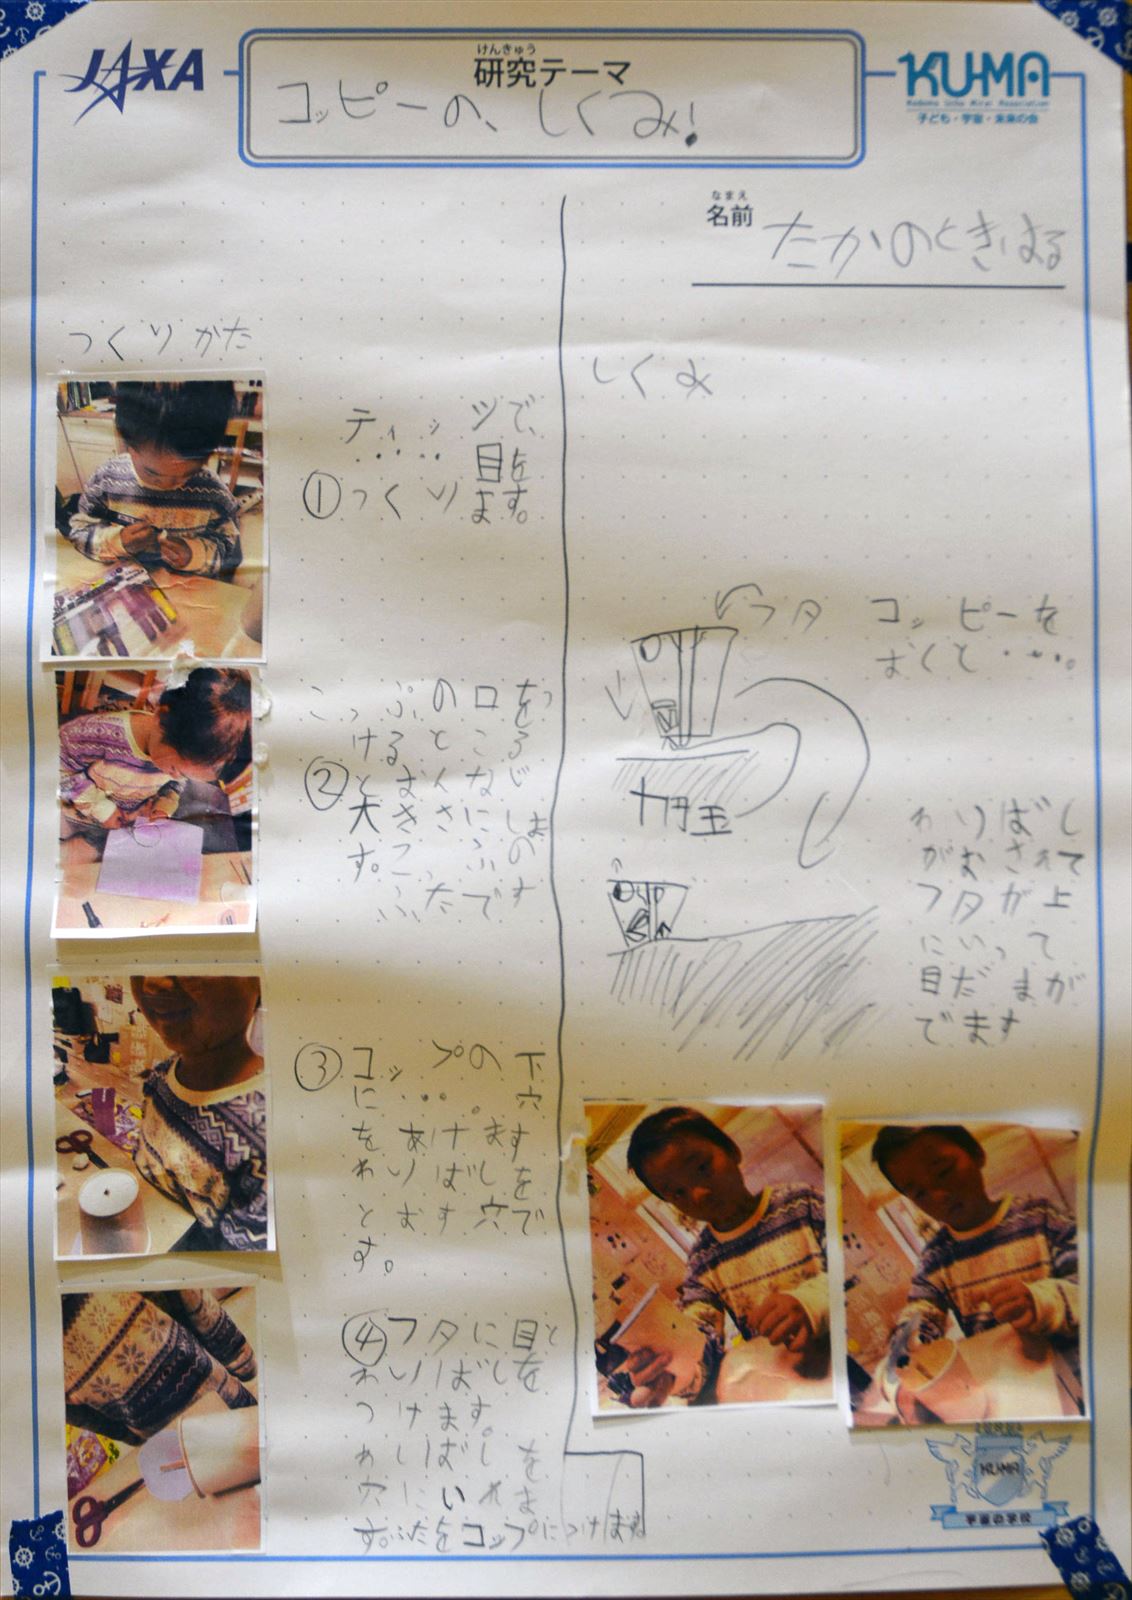 JAXA
けんきゅう
研究テーマ
コッピーの、しくみ!
KU-MA
Kodomo Uchu Mirai Association
子ども・宇宙・未来の会
なまえ
名前
たかのときはる
つくりかた
ティッシツで、
・・・・目を
①つくります。
こっぷの口をつ
けるところ
②とおんなじ
大きさにしま
す。こっぷの
ふたです
③コップの下
に・・・。穴
をあけます
わりばしを
とおす穴で
す。
④フタに目と
わりばしを
つけます。
わしばしを
穴にいれま
す。ふたをコップにつけます
しくみ
フタ
コッピーを
おくと・・・。
わりばし
がおされて
フタが上
にいって
目だまが
でます
KU-MA
宇宙の学校